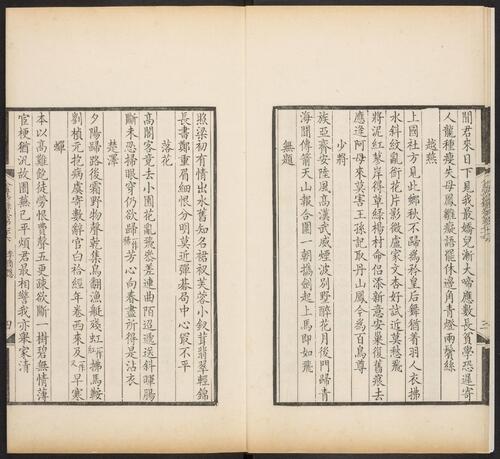 聞君來日下見我最嬌兒漸大啼應數長貧學恐遲寄
人龍種瘦失母鳳雛癡語罷休邊角青燈兩鬢絲
越燕
上國社方見此鄉秋不歸為矜皇后舞猶著羽人衣拂
水斜紋亂銜花片影微盧家文杏好試近莫愁飛
將泥紅蓼岸得草綠楊村命侶添新意安巢復舊痕去
應逢阿母來莫害王孫記取丹山鳳今為百鳥尊
少將
族亞齊安陸風高漢武威煙波別墅醉花月後門歸青
海聞傳箭天山報合圍一朝攜劍起上馬即如飛
無題
照梁初有情出水舊知名裙衩芙蓉小釵茸翡翠輕錦
長書鄭重眉細恨分明莫近彈碁局中心最不平
落花
高閣客竟去小園花亂飛參差連曲陌迢遞送斜暉腸
斷未忍掃眼穿仍欲歸一作稀芳心向春盡所得是沾衣
楚澤
夕陽歸路後霜野物聲乾集鳥翻漁艇殘虹一作紅拂馬鞍
劉楨元抱病虞寄數辭官白袷經年卷西來及一作又早寒
蟬
本以高難飽徒勞恨費聲五更疏欲斷一樹碧無情薄
官梗猶汎故園蕪已平煩君最相警我亦舉家清
四